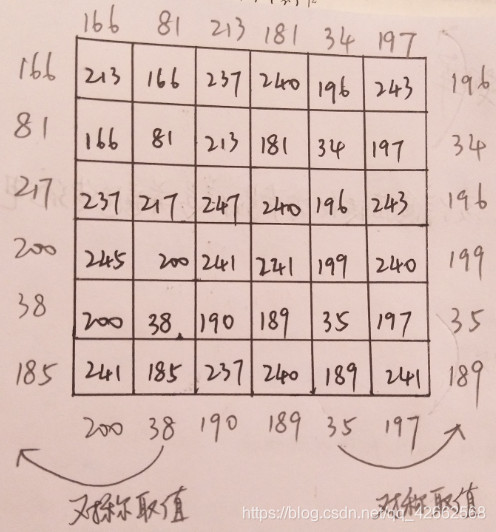 166 81 213 181 34 197
166 213 166 237 240 196 243 196
81 166 81 213 181 34 197 34
217 237 217 247 240 196 243 196
200 245 200 241 241 199 240 199
38 200 38 190 189 35 197 35
185 241 185 237 240 189 241 189
200 38 190 189 35 197
对称取值 对称取值
https://blog.csdn.net/qq_42662568